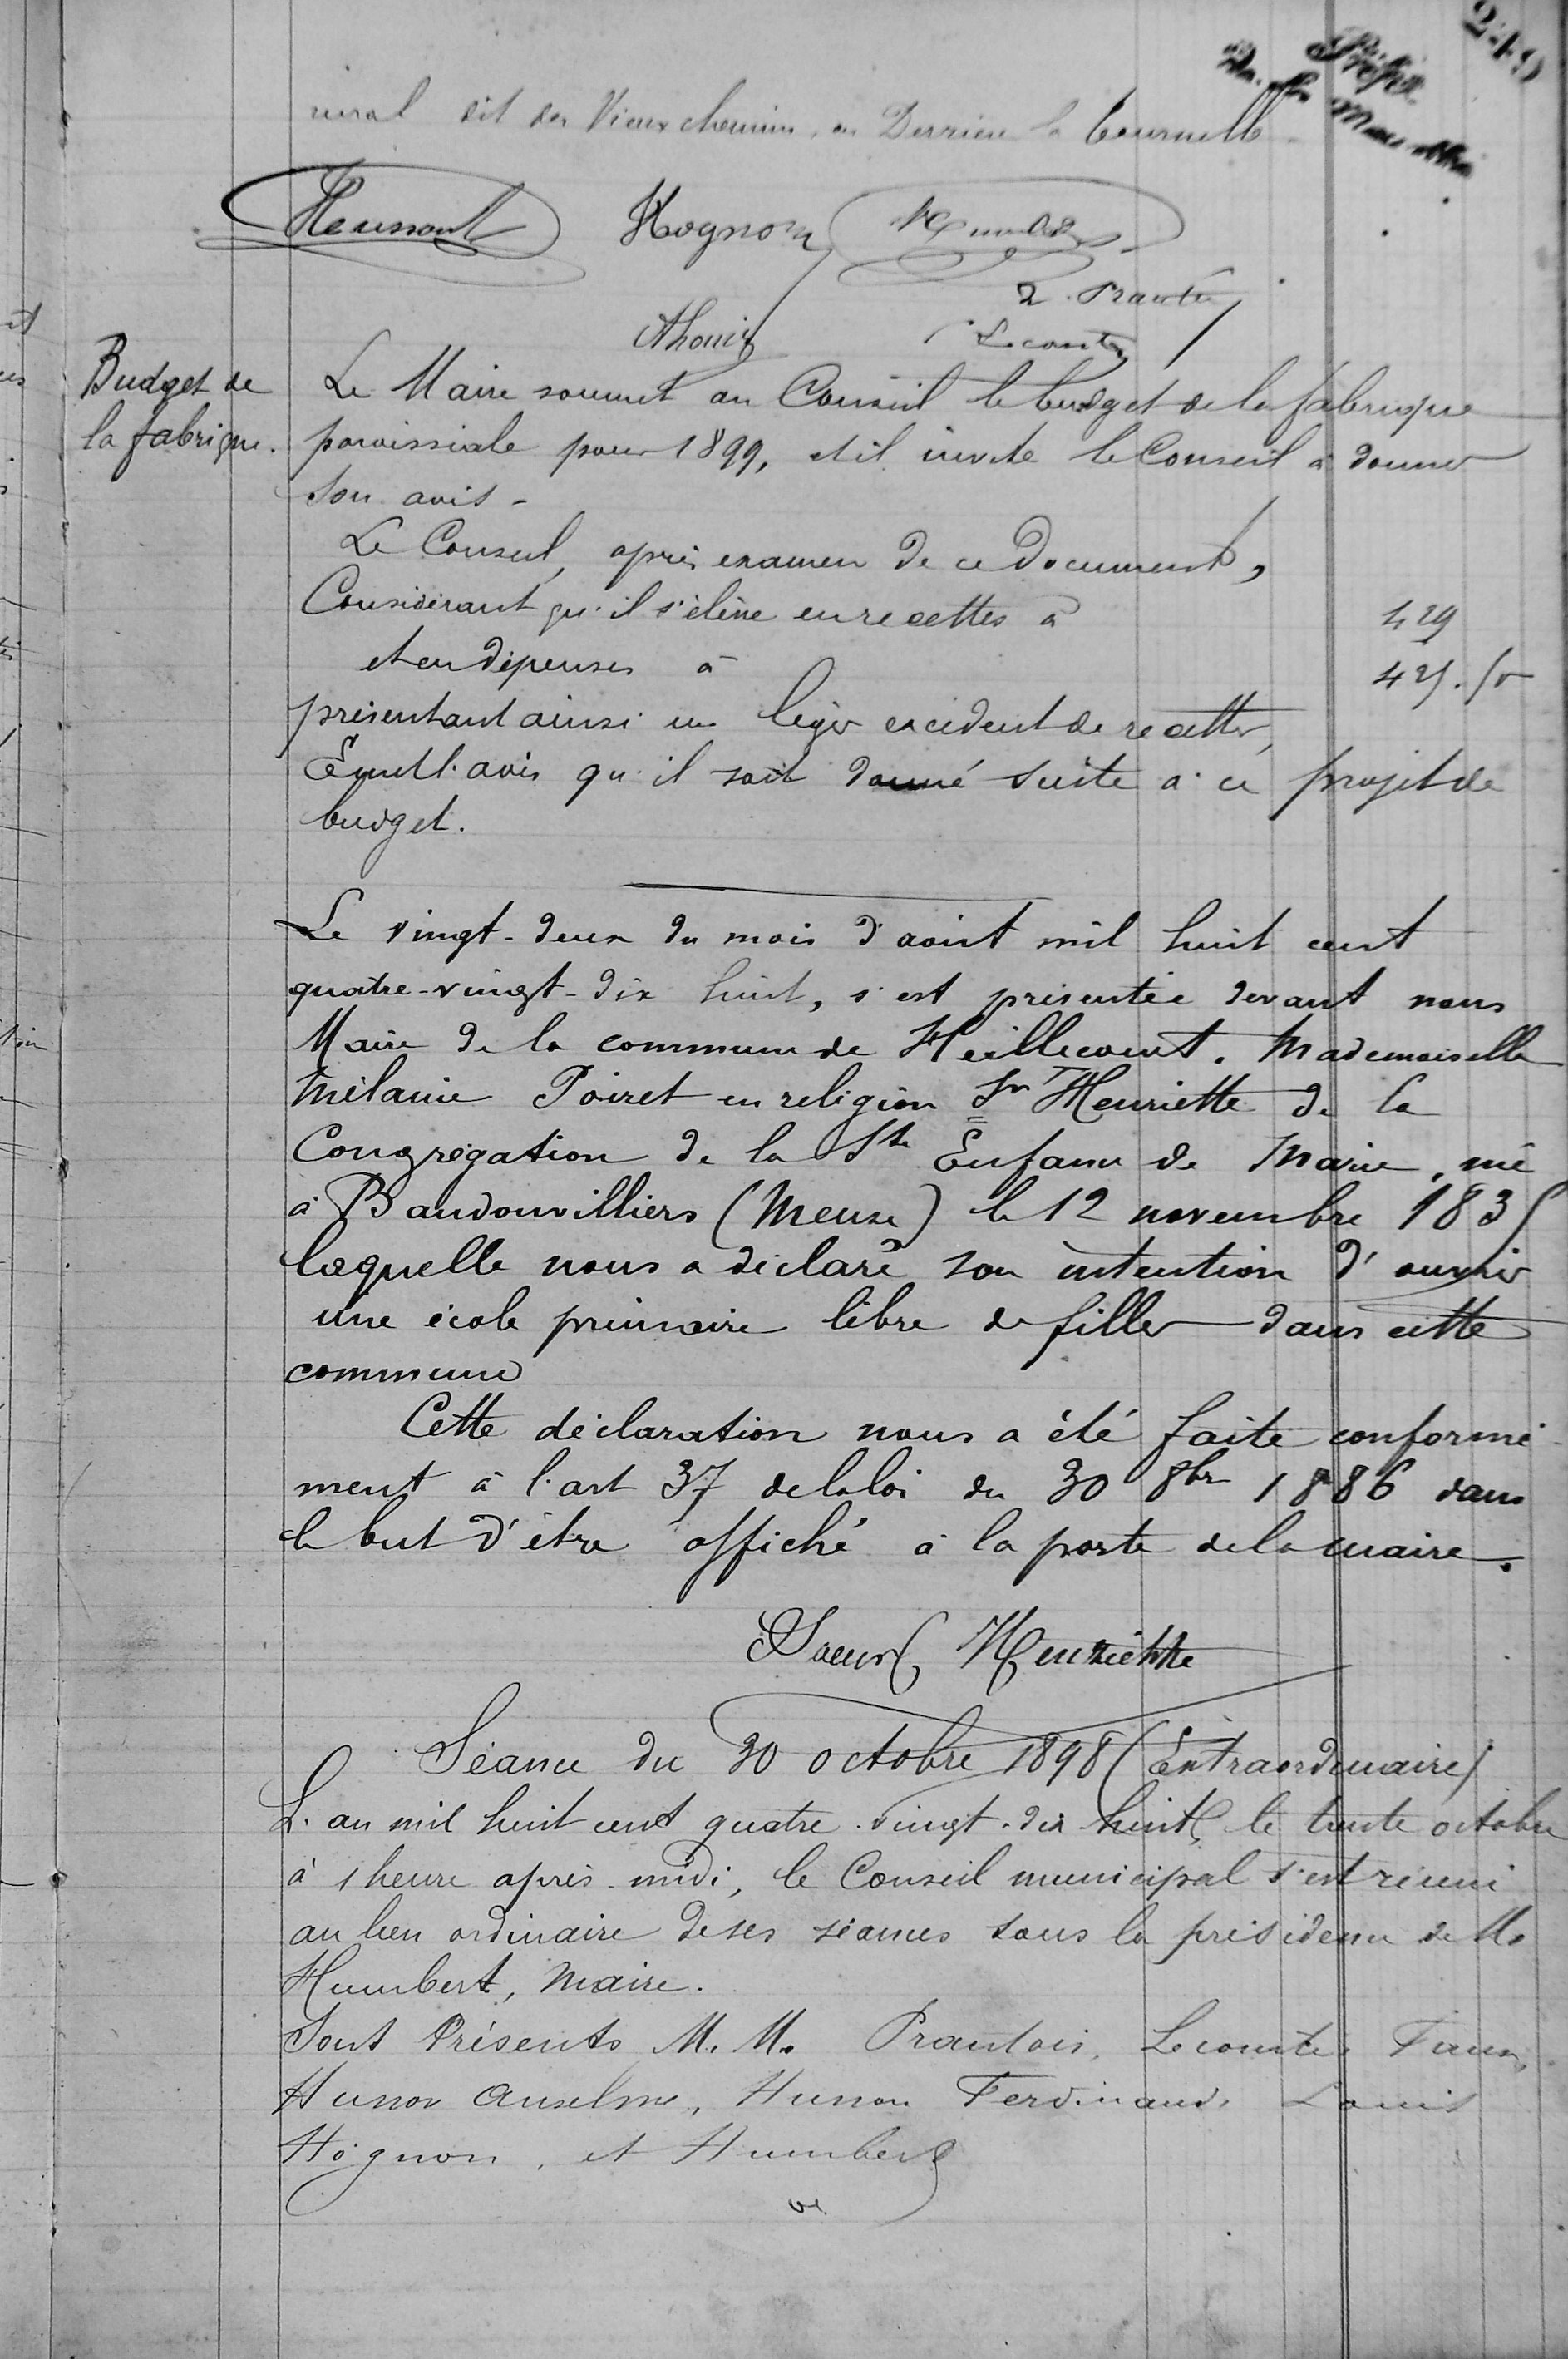 249
Préfet.
rural dit des Vieux chemins, en Derrière la Tournelle
Hussont Hognon Humbert
L. Prantois
Lecomte
Budget de
la fabrique.
Le Maire soumet au Conseil le budget de la fabrique
paroissiale pour 1899, et il invite le Conseil à donner
son avis -
Le Conseil, après examen de ce document,
Considérant qu'il s'élève en recettes à 429
et en dépenses à 425.50
présentant ainsi un léger excédent de recettes,
Emet l'avis qu'il soit donné suite à ce projet de
budget.
Le vingt-deux du mois d'aout mil huit cent
quatre-vingt-dix huit, s'est présentée devant nous
Maire de la commune de Heillecourt. Mademoiselle
Mélanie Poiret en religion Sr Henriette de la
Congrégation de la Ste Enfance de Marie, né
à Baudonvilliers (Meuse) le 12 novembre 1835
laquelle nous a déclaré son intention d'ouvrir
une école primaire libre de filles dans cette
commune
Cette déclaration nous a été faite conformé
ment à l'art 37 de la loi du 30 8bre 1886 dans
le but d'être affiché à la porte de la mairie.
Soeur Henriette
Séance du 30 octobre 1898 (Extraordinaire)
L'an mil huit cent quatre-vingt-dix huit, le trente octobre
à 1 heure après-midi, le Conseil municipal s'est réuni
au lieu ordinaire de ses séances sous la présidence de M.
Humbert, Maire.
Sont Présents M. M. Prantois, Lecomte,
Husson Anselme, Husson Ferdinand, Louis
Hognon, et Humbert